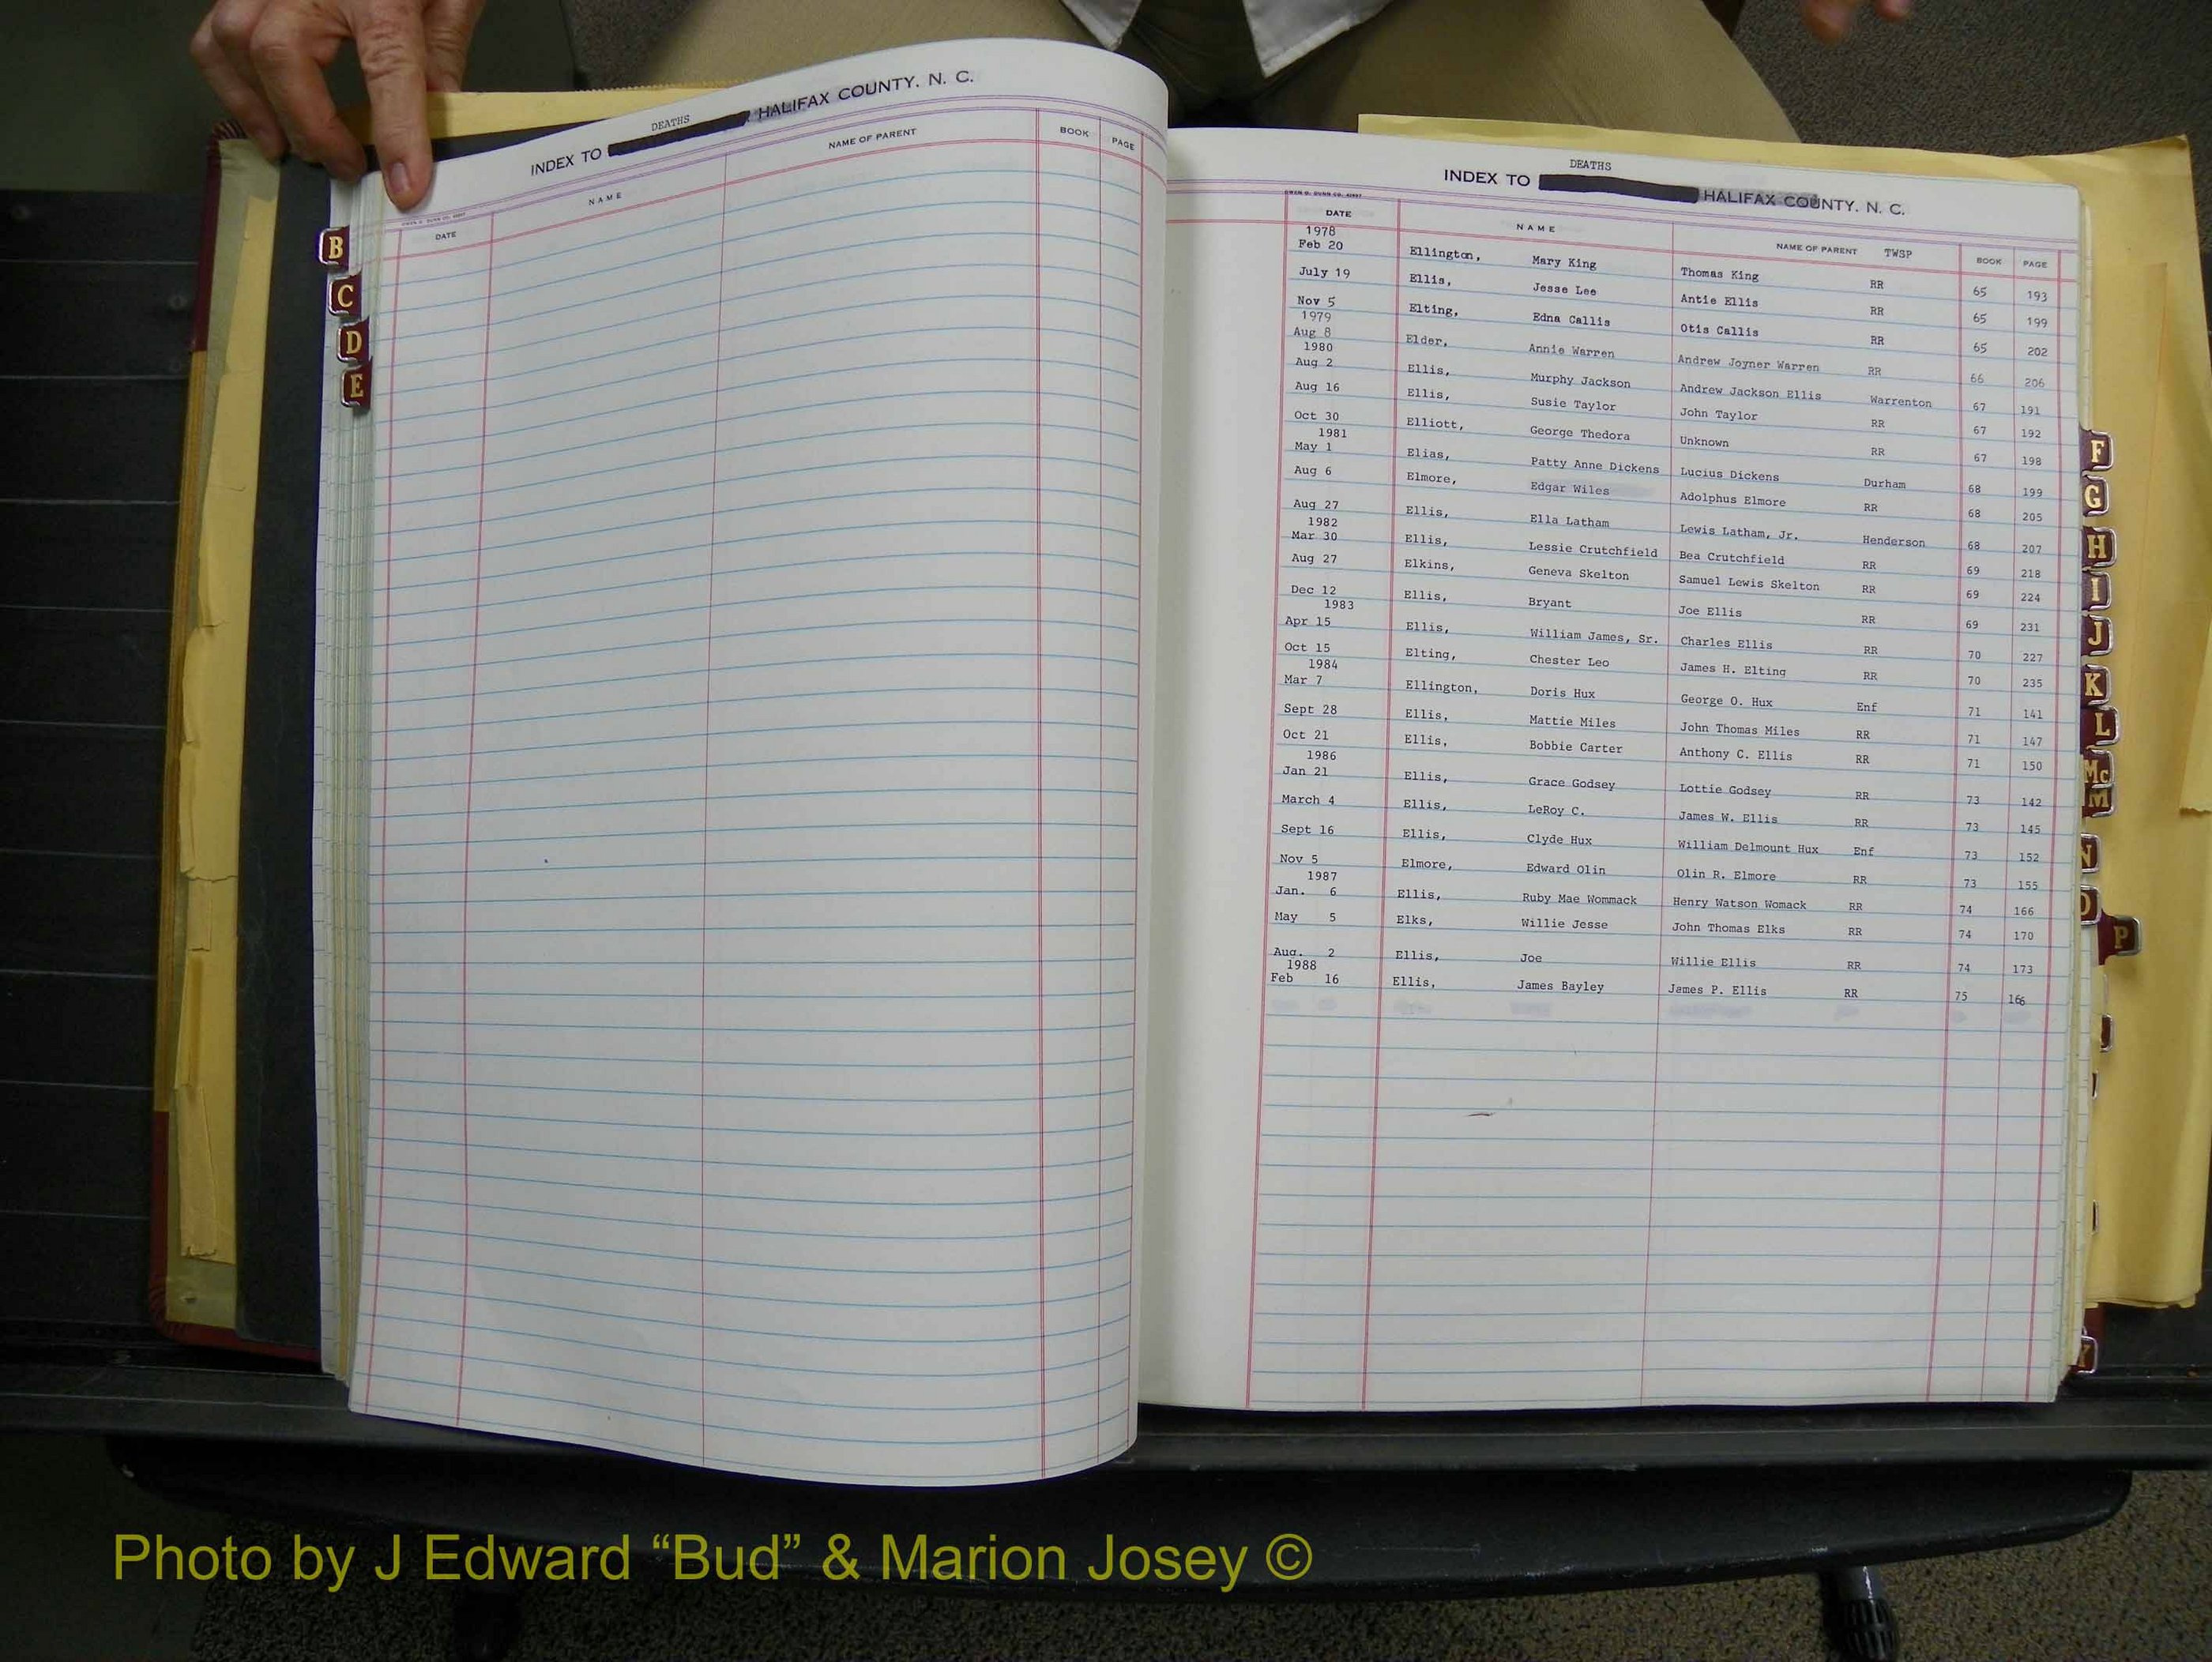 DEATHS
INDEX TO HALIFAX COUNTY, N. C.
OWEN G. DUNN CO.
DATE NAME NAME OF PARENT BOOK PAGE
B
C
D
E
DEATHS
INDEX TO HALIFAX COUNTY, N. C.
OWEN G. DUNN CO.
DATE NAME NAME OF PARENT TWSP BOOK PAGE
1978
Feb 20 Ellington, Mary King Thomas King RR 65 193
July 19 Ellis, Jesse Lee Antie Ellis RR 65 199
Nov 5 Elting, Edna Callis Otis Callis RR 65 202
1979
Aug 8 Elder, Annie Warren Andrew Joyner Warren RR 66 206
1980
Aug 2 Ellis, Murphy Jackson Andrew Jackson Ellis Warrenton 67 191
Aug 16 Ellis, Susie Taylor John Taylor RR 67 192
Oct 30 Elliott, George Thedora Unknown RR 67 198
1981
May 1 Elias, Patty Anne Dickens Lucius Dickens Durham 68 199
Aug 6 Elmore, Edgar Wiles Adolphus Elmore RR 68 205
Aug 27 Ellis, Ella Latham Lewis Latham, Jr. Henderson 68 207
1982
Mar 30 Ellis, Lessie Crutchfield Bea Crutchfield RR 69 218
Aug 27 Elkins, Geneva Skelton Samuel Lewis Skelton RR 69 224
Dec 12 Ellis, Bryant Joe Ellis RR 69 231
1983
Apr 15 Ellis, William James, Sr. Charles Ellis RR 70 227
Oct 15 Elting, Chester Leo James H. Elting RR 70 235
1984
Mar 7 Ellington, Doris Hux George O. Hux Enf 71 141
Sept 28 Ellis, Mattie Miles John Thomas Miles RR 71 147
Oct 21 Ellis, Bobbie Carter Anthony C. Ellis RR 71 150
1986
Jan 21 Ellis, Grace Godsey Lottie Godsey RR 73 142
March 4 Ellis, LeRoy C. James W. Ellis RR 73 145
Sept 16 Ellis, Clyde Hux William Delmount Hux Enf 73 152
Nov 5 Elmore, Edward Olin Olin R. Elmore RR 73 155
1987
Jan. 6 Ellis, Ruby Mae Wommack Henry Watson Womack RR 74 166
May 5 Elks, Willie Jesse John Thomas Elks RR 74 170
Aug. 2 Ellis, Joe Willie Ellis RR 74 173
1988
Feb 16 Ellis, James Bayley James P. Ellis RR 75 166
F
G
H
I
J
K
L
Mc
M
N
O
P
Photo by J Edward “Bud” & Marion Josey ©